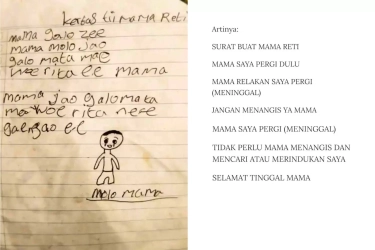 kertas tii mama Reti
mama galo zee
mama molo Jao
galo mata mae
wee rita ee mama
mama jao galo mata
mae woe rita nee
gae ngao ee
molo mama
Artinya:
SURAT BUAT MAMA RETI
MAMA SAYA PERGI DULU
MAMA RELAKAN SAYA PERGI
(MENINGGAL)
JANGAN MENANGIS YA MAMA
MAMA SAYA PERGI (MENINGGAL)
TIDAK PERLU MAMA MENANGIS DAN
MENCARI ATAU MERINDUKAN SAYA
SELAMAT TINGGAL MAMA